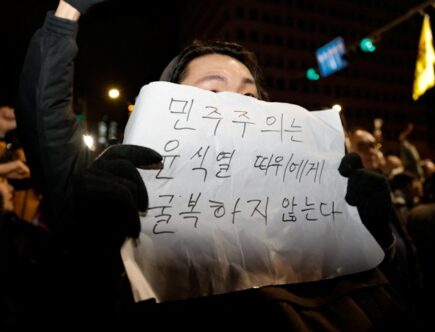 민주주의는
윤석열 따위에게
굴복하지 않는다